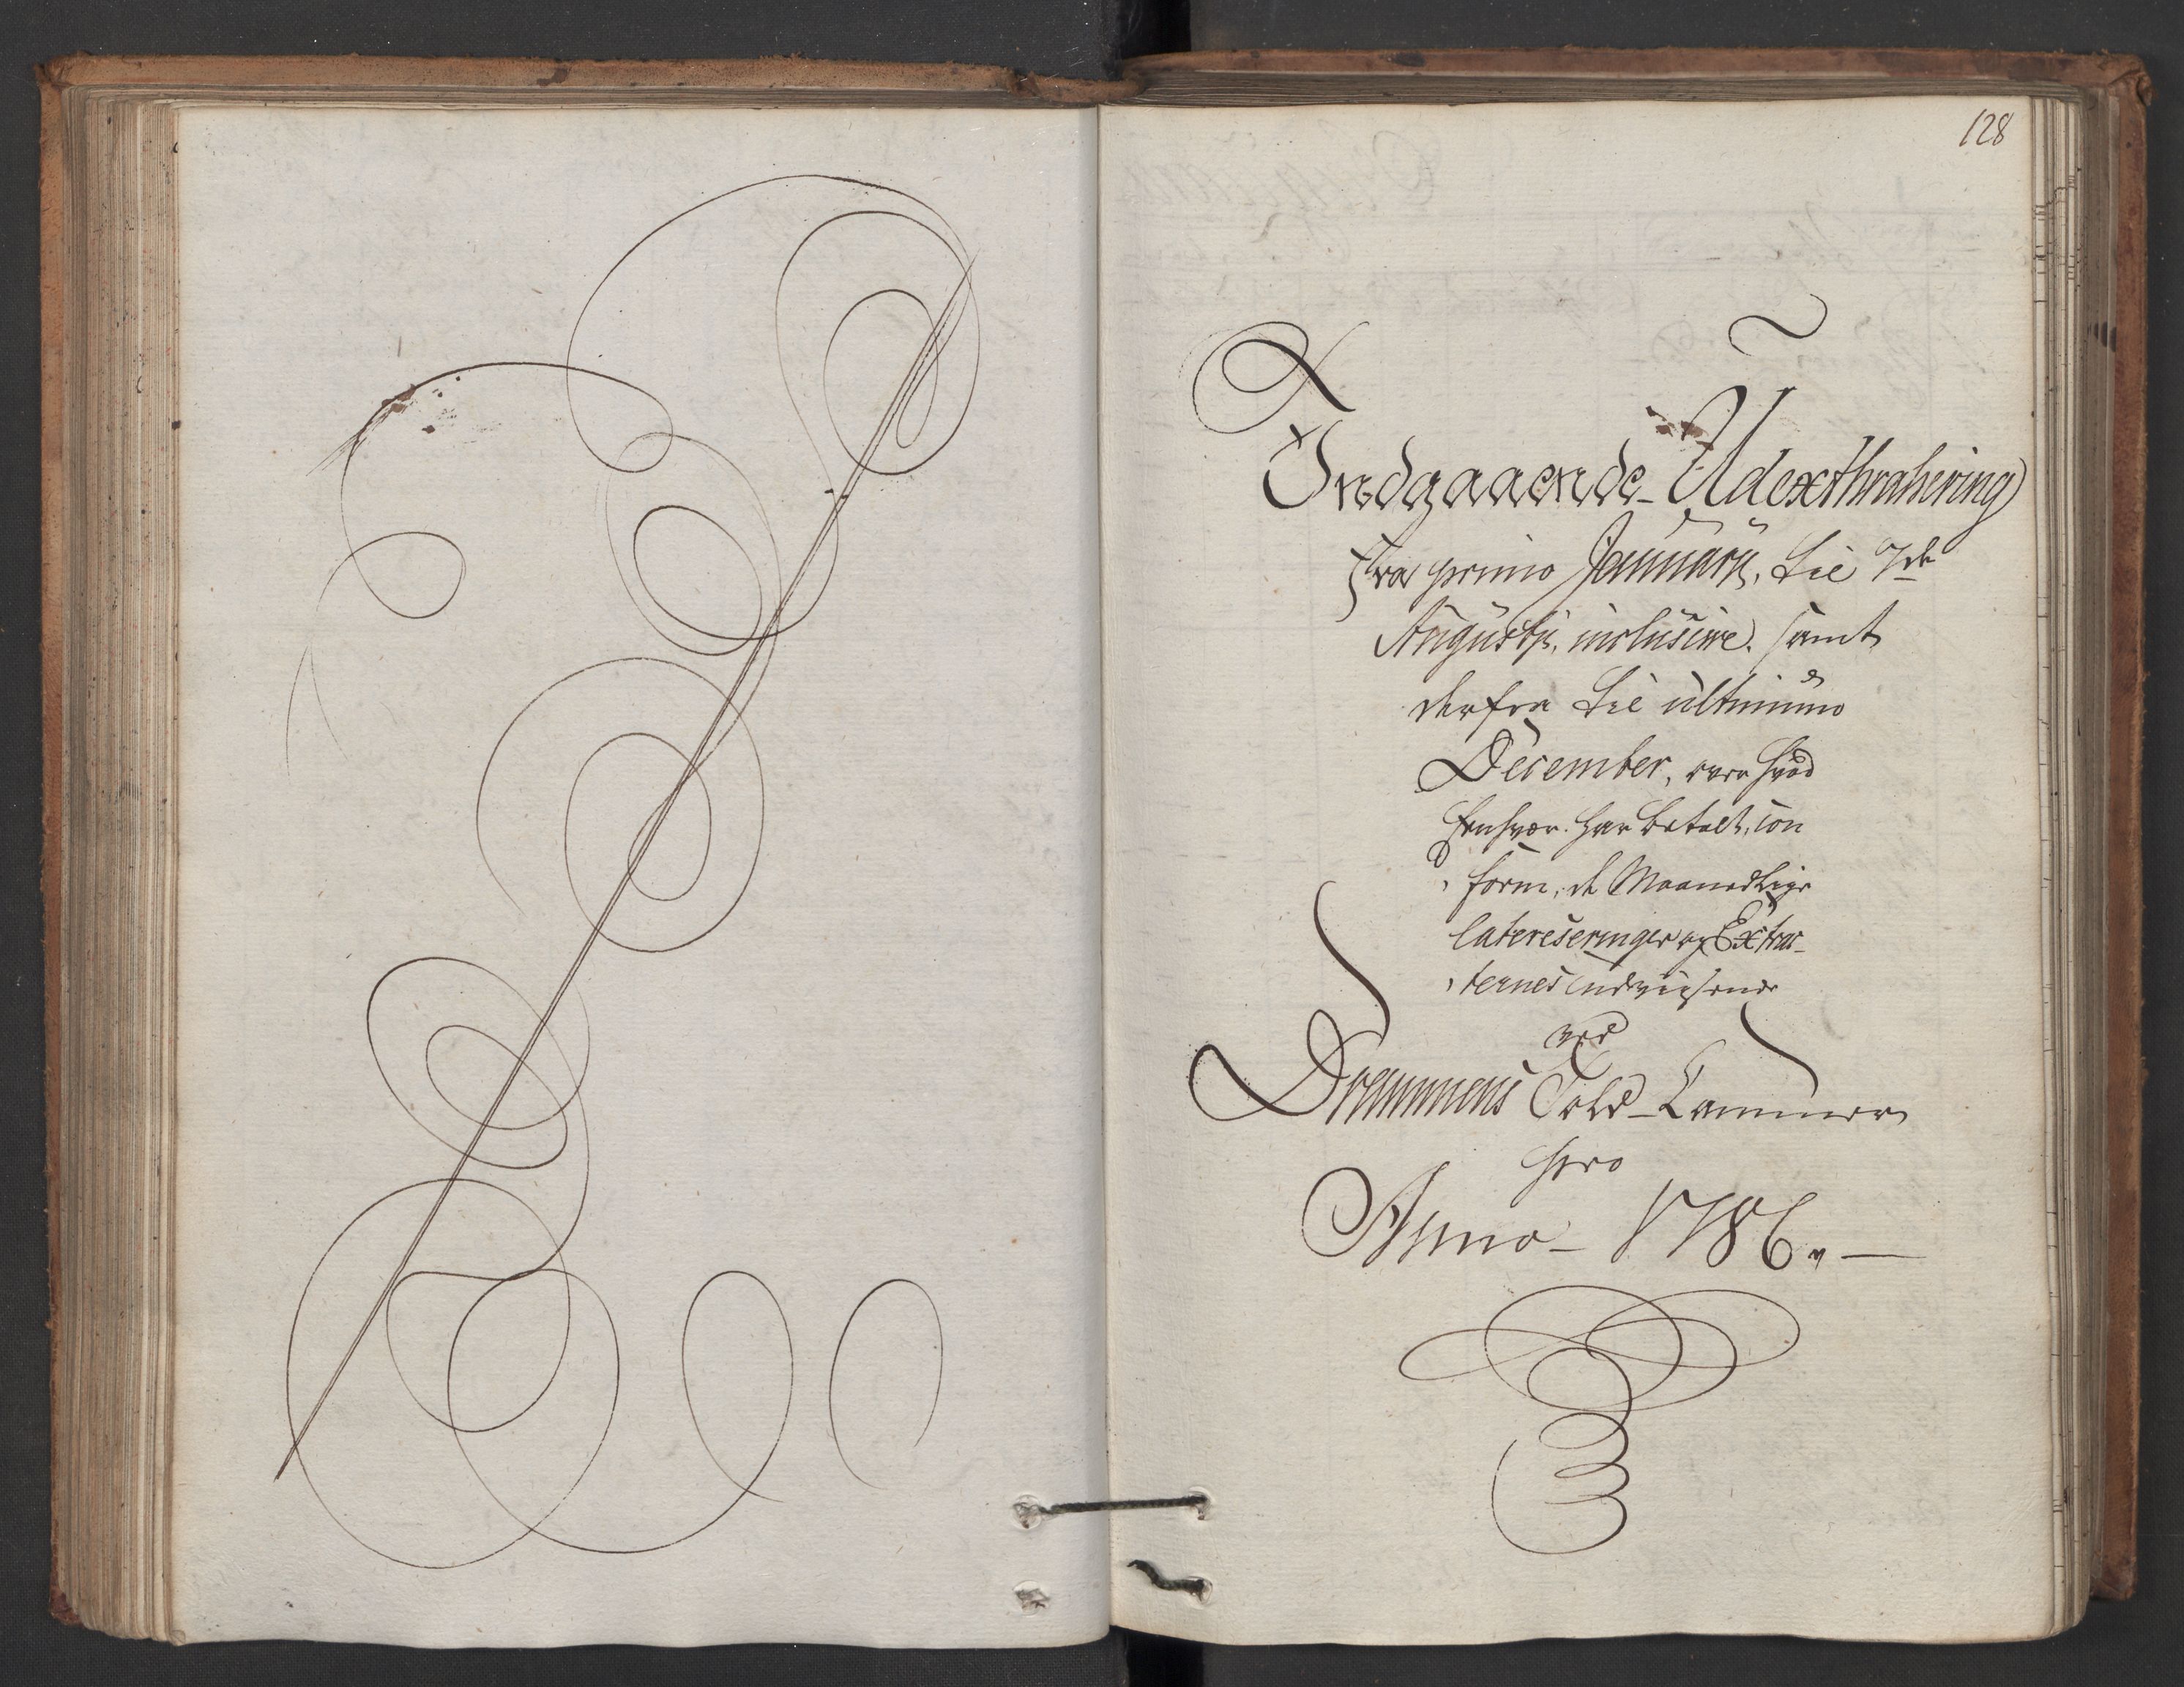 128
Indgaaende Udexthrahering
fra primo Januarÿ, til 7de
Augustÿ, inclusive, samt
derfra til ultimmo
December, over hvad
Enhver har betalt, con
form, de Maanedlige
latereseringer og Extrac-
ternes Udviisende
ved
Drammens Told-Cammer
pro
Anno 1786.